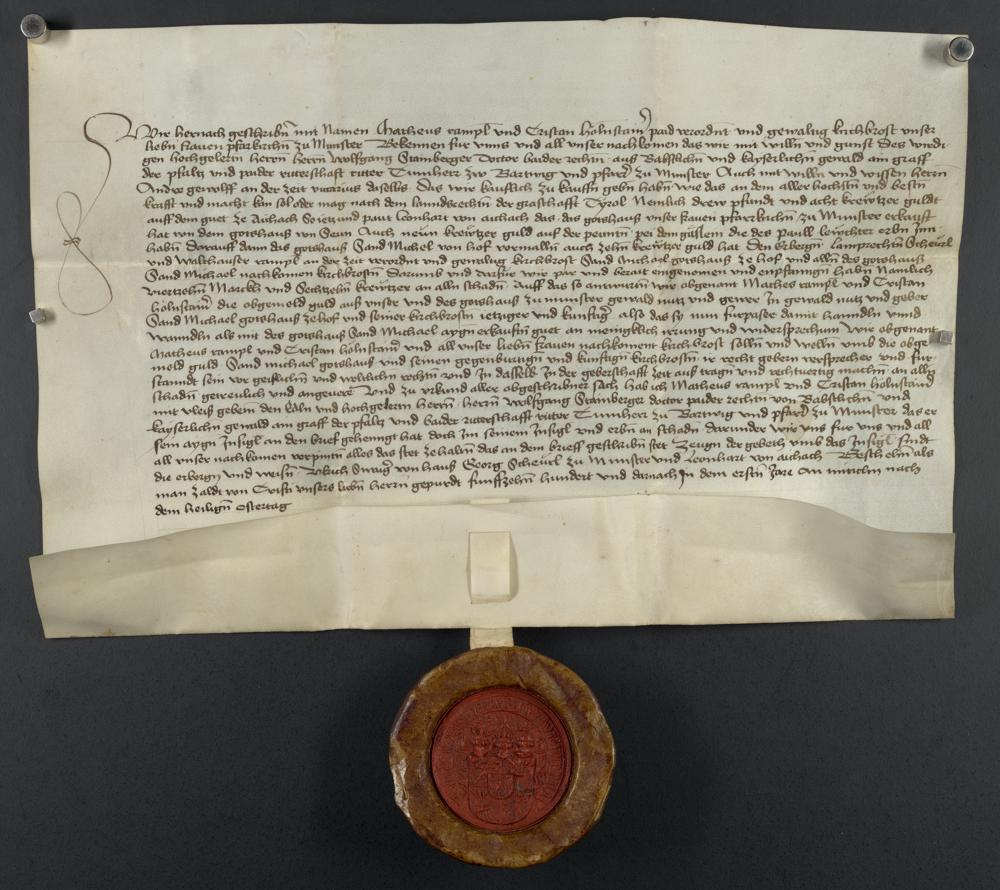 Wir hernach geschribn mit Namen Matheus rampl und Cristan hölnstain paid verordnt und gewaltig kirchbrost unser
liebn frauen pfarkirchn zu Munster Bekennen fur unns und all unser nachkomen das wir mit willn und gunst des wirdi
gen hochgelertn herrn herrn Wolfgang Stamberger Doctor baider rechtn auß Babstlichn und kayserlichn gewald am graff
der pfaltz und paider ritterschaft ritter Tumherr zw Bartwig und pfarrer zu Munster Auch mit willn und wissen herrn
Andre gerolff an der zeit vicarius daselbs Das wir kauflich zu kauffn gebn habn wie das an dem aller hochstn und bestn
krafft und macht hin sol oder mag nach dem lanndsrechtn der graffschafft Tyrol Nemlich drew pfundt und acht krewtzer guldt
auff dem guet ze Aichach So ietzund paut Leonhart von aichach das das gotshauß unser frauen pfarrkirchn zu Munster erkauft
hat von dem gotshauß von Seun Auch neün krewtzer guld auf der peuntn pei dem gäslein die des Paull leychter erbn Inn
habn Darauff dann das gotshauß Sand Michel von hof vormalln auch zehn krewtzer guld hat Den Erbergn Lamprechtn Scheurl
und Walthauser rampl an der zeit verordnt und gewaltig kirchbrost Sand Michael gotshauß ze hof und alln des gotshauß
Sand Michael nachkomen kirchbrostn Darumb und darfür wir par und berait eingenomen und enpfanngn habn Namlich
viertzehn Marckh und Sechtzehn krewtzer an alln schadn Auff das so antwurtn wir obgenant Mathes rampl und Cristan
hölnstainer die obgemelt guld auß unser und des gotshauß zu munster gewald nutz und gewer In gewald nutz und geber
Sand Michael gotshauß ze hof und seiner kirchbrostn ietziger und kunftiger also das sy nun furpaser damit hanndln unnd
wanndln als mit des gotshauß Sand Michael aygn erkauftn guet an meniglich irrung und widersprechum Wir obgenant
Matheus rampl und Cristan hölnstainer und all unser liebn frauen nachkoment kirchbrost sölln und welln umb die obge
melt guld Sand michael gotshauß und seinen gegenburtign und kunftign kirchbrostn ir recht gebern versprecher und fur
stanndt sein vor geistlichn und weltlichn rechtn und In dasselb In der geberschafft zeit auß tragn und rechtvertig machn an alln
schadn getreulich und angeverd Und zu urkund aller obgeschribner sach hab ich Matheus rampl und Cristan hölnstainer
mit vleiß gebetn den Edln und hochgelertn herrn herrn Wolfgang Stamberger doctor paider rechtn von Babstlichn und
kayserlichn gewald am graff der pfaltz und baider ritterschafft ritter Tumherr zu Bartwig und pfarrer zu Munster das er
sein aygn Insigl an den brief gehenngt hat doch im seinem Insigl und erbn an schadn darunder wir uns fur uns und all
all unser nachkomen verpintn allos das stet ze haltn das an dem brieff geschribn stet Zeugn der gebetn umb das Insigl sindt
die erbergn und weisn Ulrich Swaiger von hauß Georg Scheürl zu Munster und Leonhart von aichach Beschehn als
man zaldt von Cristi unsers liebn herrn gepurdt funffzehn hundert und darnach In dem erstn Jare An mittichn nach
dem heiligen ostertag